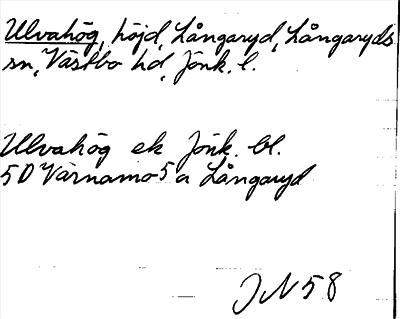 Ulvahög, höjd, Långaryd, Långaryds
sn, Västbo hd, Jönk. l.
Ulvahög ek Jönk. bl.
5D Värnamo 5a Långaryd
JN 58